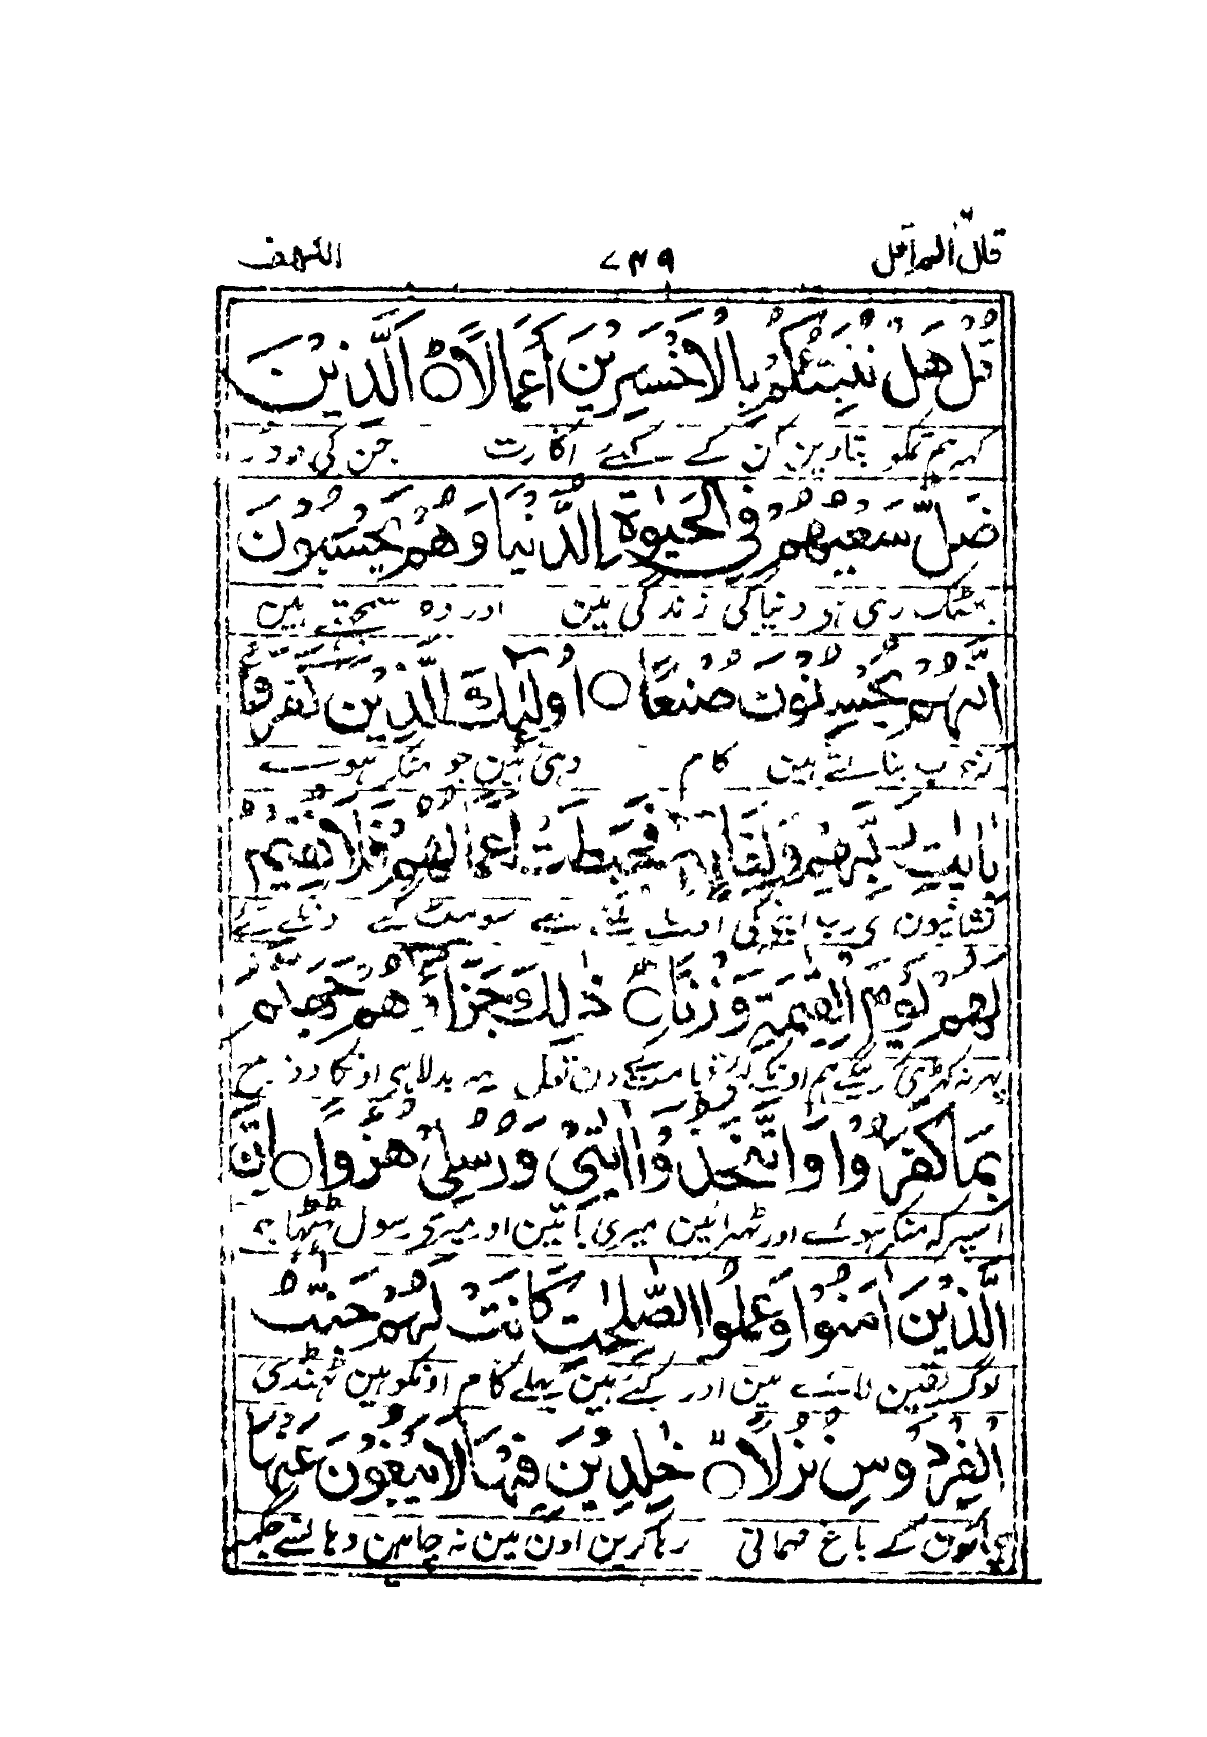 قال الم اقل ۷۴۹ الكهف
قُلْ هَلْ نُنَبِّئُكُمْ بِالْاَخْسَرِيْنَ اَعْمَالًا ○ اَلَّذِيْنَ
کہہ ہم تمکو بتاوین کن کے کیٔے اکارت جن کی دوڑ
ضَلَّ سَعْيُهُمْ فِى الْحَيٰوةِ الدُّنْيَا وَهُمْ يَحْسَبُوْنَ
بھٹک رہی ہو دنیا کی زندگی مین اور وہ سمجھتے ہین
اَنَّهُمْ يُحْسِنُوْنَ صُنْعًا ○ اُولٰٓئِكَ الَّذِيْنَ كَفَرُوْا
خوب بناتے ہین کام وہی ہین جو منکر ہوے
بِاٰيٰتِ رَبِّهِمْ وَلِقَآئِهٖ فَحَبِطَتْ اَعْمَالُهُمْ فَلَا نُقِيْمُ
نشانیون سے رب اپنے کی اور سو مٹ گئے
لَهُمْ يَوْمَ الْقِيٰمَةِ وَزْنًا ○ ذٰلِكَ جَزَآؤُهُمْ جَهَنَّمُ
پہر نہ کہڑی کرینگے ہم اونکے قیامت کے دن تول یہ بدلا ہی اونکا دوزخ
بِمَا كَفَرُوْا وَاتَّخَذُوْٓا اٰيٰتِىْ وَرُسُلِىْ هُزُوًا ○ اِنَّ
اسپر کہ منکر ہوئے اور ٹھرائین میری باتین اور میری رسول ٹھٹھا
الَّذِيْنَ اٰمَنُوْا وَعَمِلُوا الصّٰلِحٰتِ كَانَتْ لَهُمْ جَنّٰتُ
لوگ یقین لائے ہین اور کئے ہین بھلے کام اونکو ہین ٹھنڈی
الْفِرْدَوْسِ نُزُلًا ○ خٰلِدِيْنَ فِيْهَا لَا يَبْغُوْنَ عَنْهَا
چھانوُن کے باغ مہمانی رہا کرین اون مین نہ چاہین وہانسے جگہہ